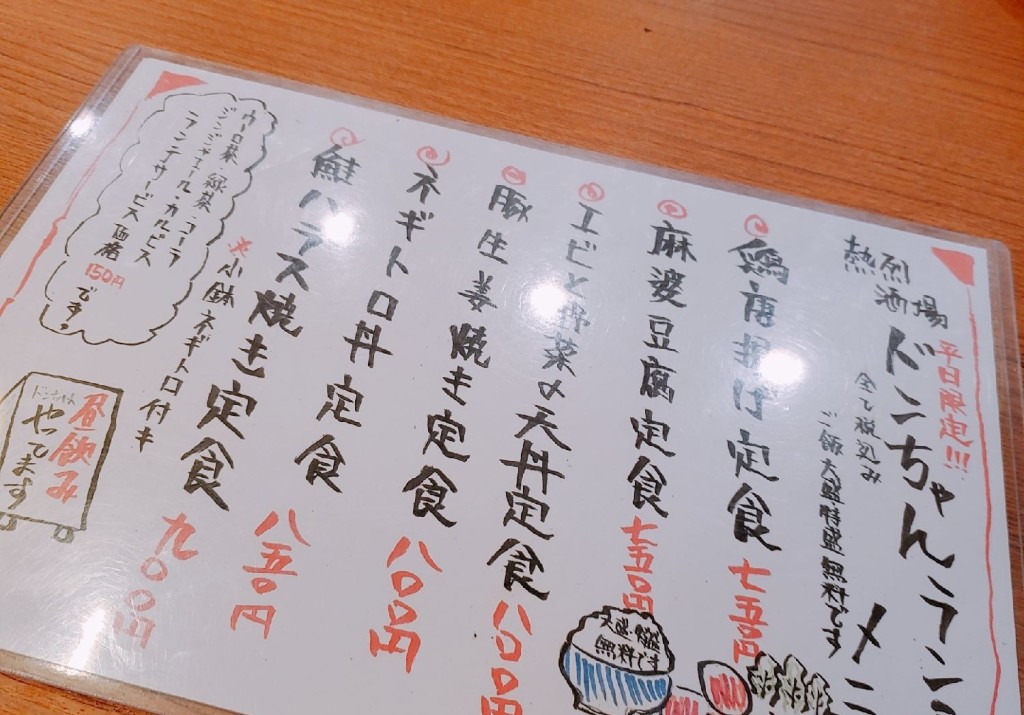 平日限定!!!
熱烈
酒場
ドンちゃんラン
メニ
全て税込み
ご飯大盛・特盛無料です
鶏唐揚げ定食 七五〇円
麻婆豆腐定食 七五〇円
エビと野菜の天丼定食 八〇〇円
豚生姜焼き定食 八〇〇円
ネギトロ丼定食 八五〇円
鮭ハラス焼き定食 九〇〇円
※小鉢ネギトロ付キ
ウーロン茶・緑茶・コーラ
ジンジャエール・カルピス
ランチサービス価格
150円です。
ドンちゃん
昼飲み
やってます
大盛・特盛
無料です